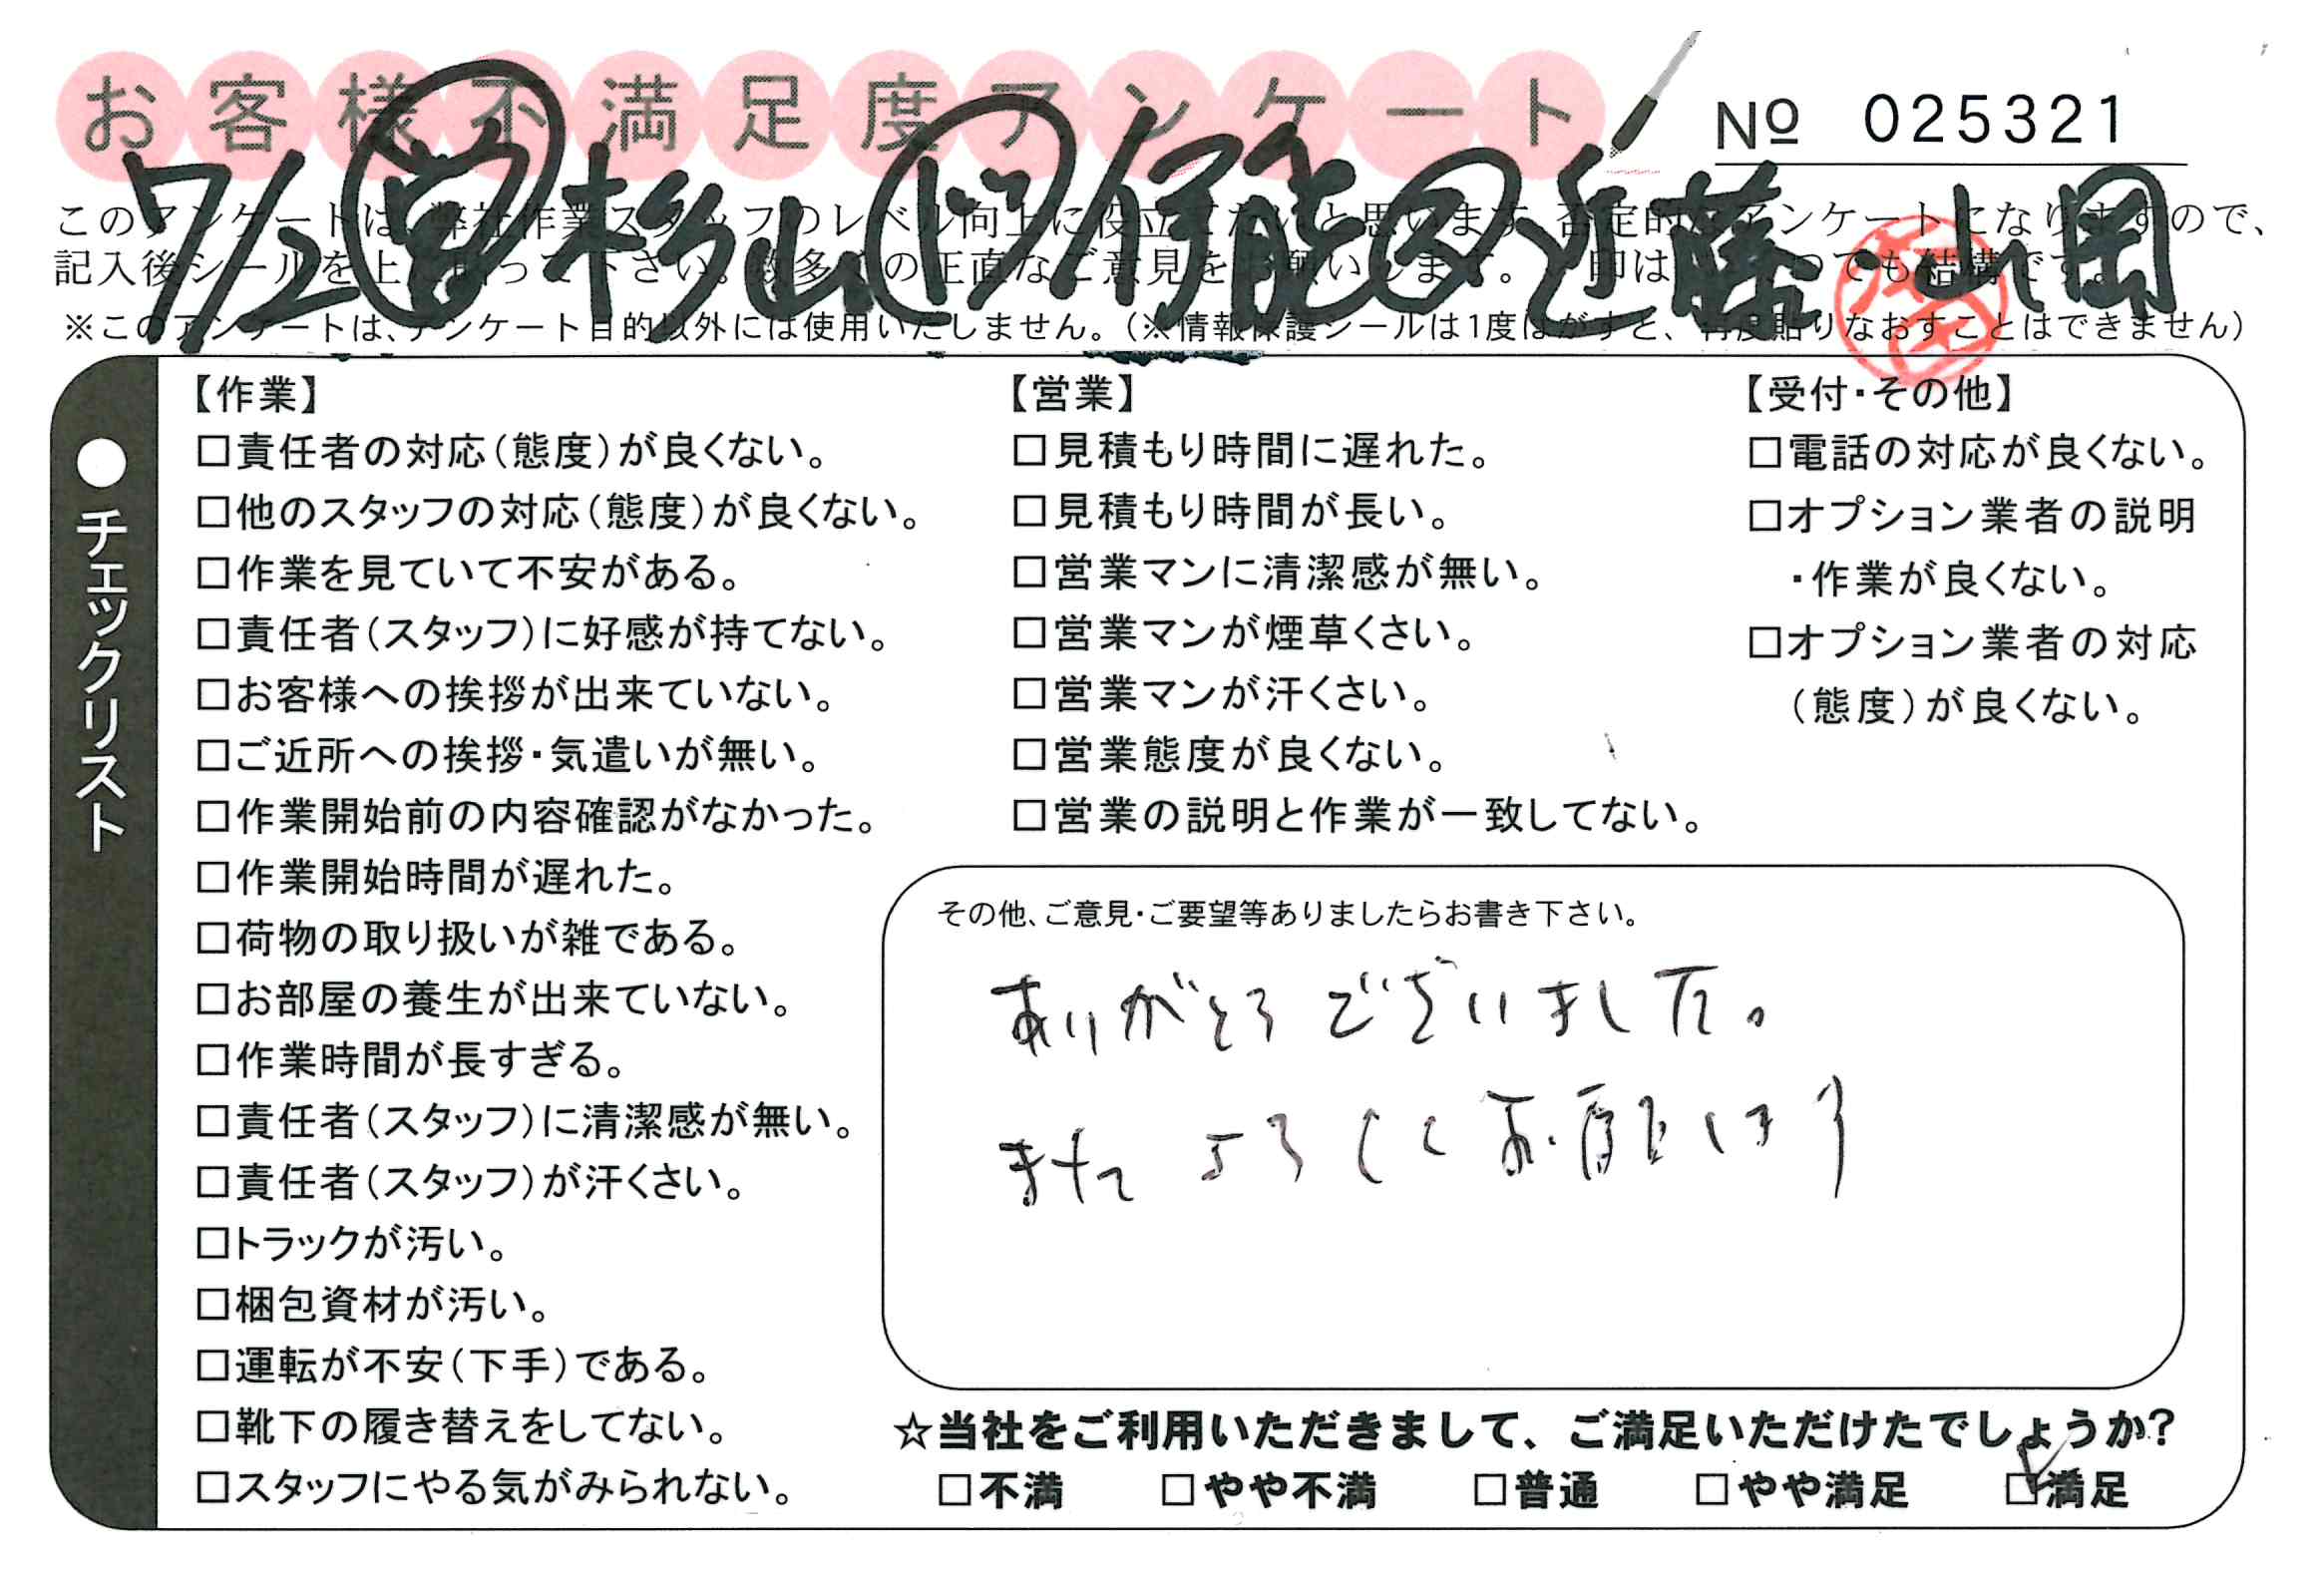 お客様不満足度アンケート
№ 025321
7/2 営 杉山 伊能 近藤・山岡
このアンケートは、弊社作業スタッフのレベル向上に役立てたいと思います。否定的なアンケートになりますので、
記入後シールを上に貼って下さい。数多くの正直なご意見をお願いします。
※このアンケートは、アンケート目的以外には使用いたしません。(※情報保護シールは1度はがすと、再度貼りなおすことはできません)
●チェックリスト
【作業】
□責任者の対応(態度)が良くない。
□他のスタッフの対応(態度)が良くない。
□作業を見ていて不安がある。
□責任者(スタッフ)に好感が持てない。
□お客様への挨拶が出来ていない。
□ご近所への挨拶・気遣いが無い。
□作業開始前の内容確認がなかった。
□作業開始時間が遅れた。
□荷物の取り扱いが雑である。
□お部屋の養生が出来ていない。
□作業時間が長すぎる。
□責任者(スタッフ)に清潔感が無い。
□責任者(スタッフ)が汗くさい。
□トラックが汚い。
□梱包資材が汚い。
□運転が不安(下手)である。
□靴下の履き替えをしてない。
□スタッフにやる気がみられない。
【営業】
□見積もり時間に遅れた。
□見積もり時間が長い。
□営業マンに清潔感が無い。
□営業マンが煙草くさい。
□営業マンが汗くさい。
□営業態度が良くない。
□営業の説明と作業が一致してない。
【受付・その他】
□電話の対応が良くない。
□オプション業者の説明
・作業が良くない。
□オプション業者の対応
(態度)が良くない。
その他、ご意見・ご要望等ありましたらお書き下さい。
ありがとうございました。
またよろしくお願いします
☆当社をご利用いただきまして、ご満足いただけたでしょうか?
□不満 □やや不満 □普通 □やや満足 ☑満足